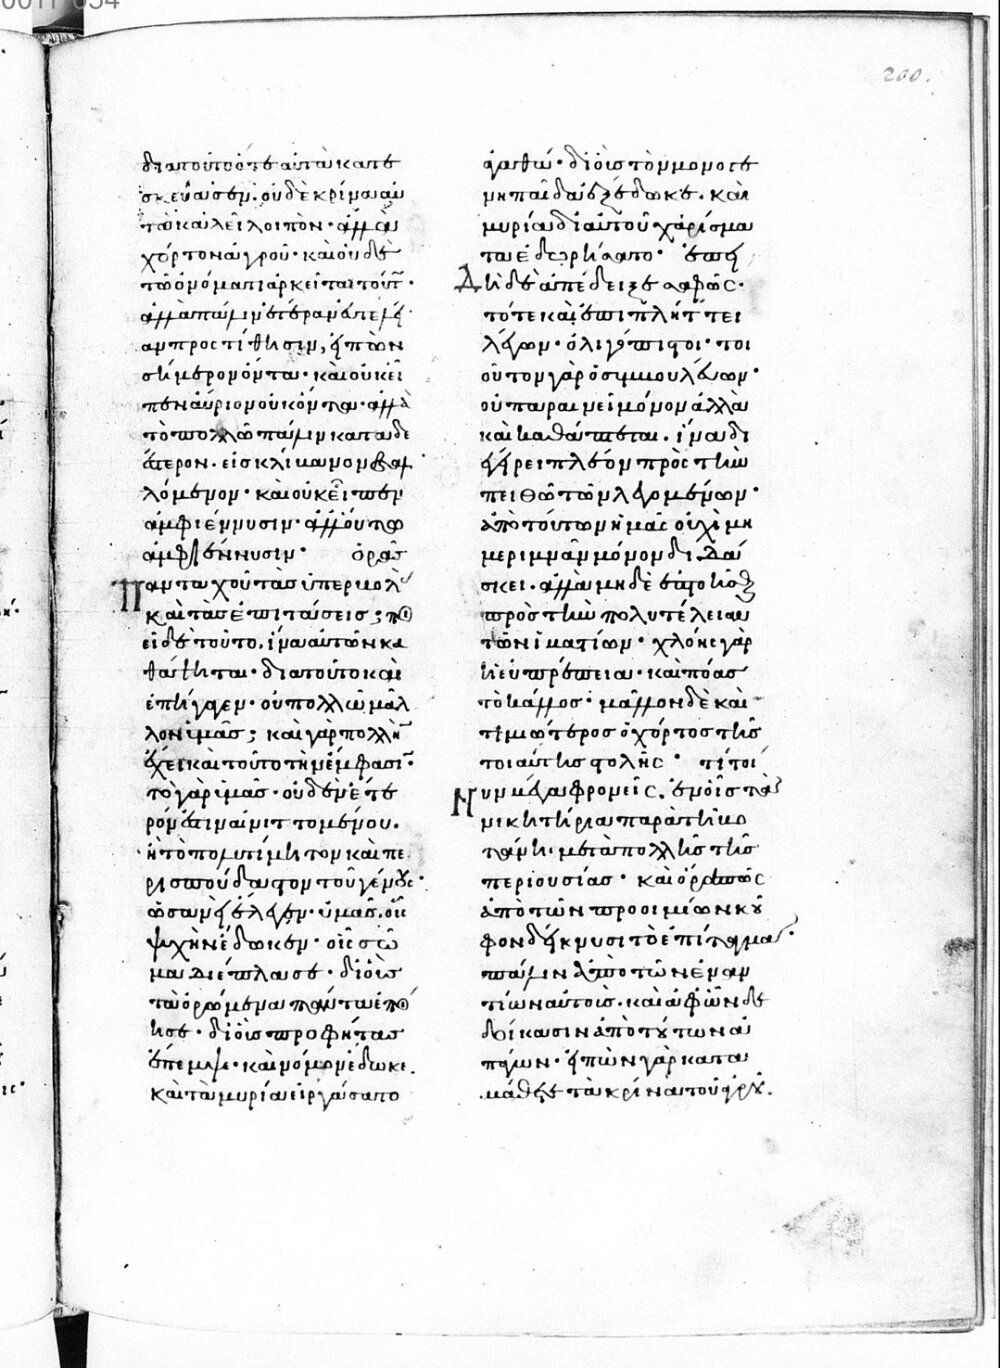 200.
διαπούτοότε αὐτὰ κατε
σκεύασεν. οὐδὲ κρίνα αὐ
τὰ καλεῖ λοιπὸν· ἀλλὰ
χόρτον ἀγροῦ· καὶ οὐδὲ
τῶ ὀνόματι ἀρκεῖται τούτ·
ἀλλὰ πάλιν ἑτέραν
αν προστίθησιν, εἰπὼν
σήμερον ὄντα· καὶ οὐκ εἶ
πεν αὔριον οὐκ ὄντα· ἀλλὰ
τὸ πολλῶ πάλιν καταδε
έστερον. εἰς κλίβανον βαλ
λόμενον· καὶ οὐκ εἶπεν
ἀμφιέννυσιν· ἀλλ' οὕτω
ἀμφιέννυσιν· ὁρᾶς
Πανταχοῦ τὰς ὑπερβολὰς
καὶ τὰς ἐπιτάσεις; ποι
εῖ δὲ τοῦτο, ἵνα αὐτῶν κα
θάψηται· διὰ τοῦτο καὶ
ἐπήγαγεν· οὐ πολλῶ μᾶλ
λον ὑμᾶς; καὶ γὰρ πολλὴν
ἔχει καὶ τοῦτο τὴν ἔμφασιν·
τὸ γὰρ ὑμᾶς· οὐδὲν ἕτε
ρόν ἐστιν αἰνιττομένου.
ἢ τὸ πολυτίμητον καὶ πε
ρισπούδαστον τοῦ γένους·
ὡσανεὶ ἔλεγεν· ὑμᾶς. οἷς
ψυχὴν ἔδωκεν· οἷς σῶ
μα διέπλασε· δι' οὓς
τὰ ὁρώμενα πάντα ἐποί
ησε· δι' οὓς προφήτας
ἔπεμψε· καὶ νόμον ἔδωκε.
καὶ τὰ μυρία εἰργάσατο
ἀγαθά· δι' οὓς τὸν μονογε
νῆ παῖδα ἐξέδωκε. καὶ
μυρία δι' αὐτοῦ χαρίσμα
τα ἐδωρήσατο· ἐπει
Δὴ δὲ ἀπέδειξε σαφῶς·
τότε καὶ ἐπιπλήττει
λέγων· ὀλιγόπιστοι· τοι
οῦτον γὰρ ὁ συμβουλεύων·
οὐ παραινεῖ μόνον ἀλλὰ
καὶ καθάπτεται. ἵνα δι
εγείρει πλέον πρὸς τὴν
πειθὼ τῶν λεγομένων·
ἀπὸ τούτων ἡμᾶς οὐχὶ μὴ
μεριμνᾶν μόνον διδά
σκει. ἀλλὰ μηδὲ ἐπτοῆσθ
πρὸς τὴν πολυτέλειαν
τῶν ἱματίων· χλόης γὰρ
ἡ εὐπρέπεια· καὶ πόας
τὸ κάλλος· μᾶλλον δὲ καὶ
τιμιώτερος ὁ χόρτος τῆς
τοιαύτης στολῆς· τί τοί
Νυν μέγα φρονεῖς. ἐν οἷς τὰ
νικητήρια παρὰ τῆ βο
τάνη. μετὰ πολλῆς τῆς
περιουσίας· καὶ ὅρα πῶς
ἀπὸ τῶν προοιμίων κοῦ
φον δείκνυσι τὸ ἐπίταγμα·
πάλιν ἀπὸ τῶν ἐναν
τίων αὐτοῖς. καὶ ἀφ' ὧν δε
δοίκασιν ἀπὸ τούτων ἀ
πάγων· εἰπὼν γὰρ κατα
μάθετε τὰ κρίνα τοῦ ἀγροῦ.